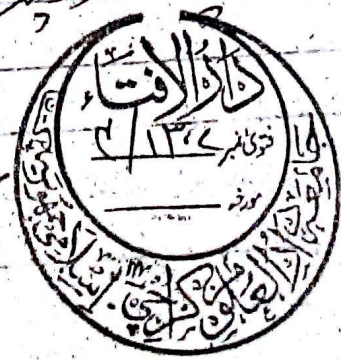 دارالافتاء
فتویٰ نمبر ۱۳۰۷/۴
مورخہ
جامعہ دارالعلوم کراچی